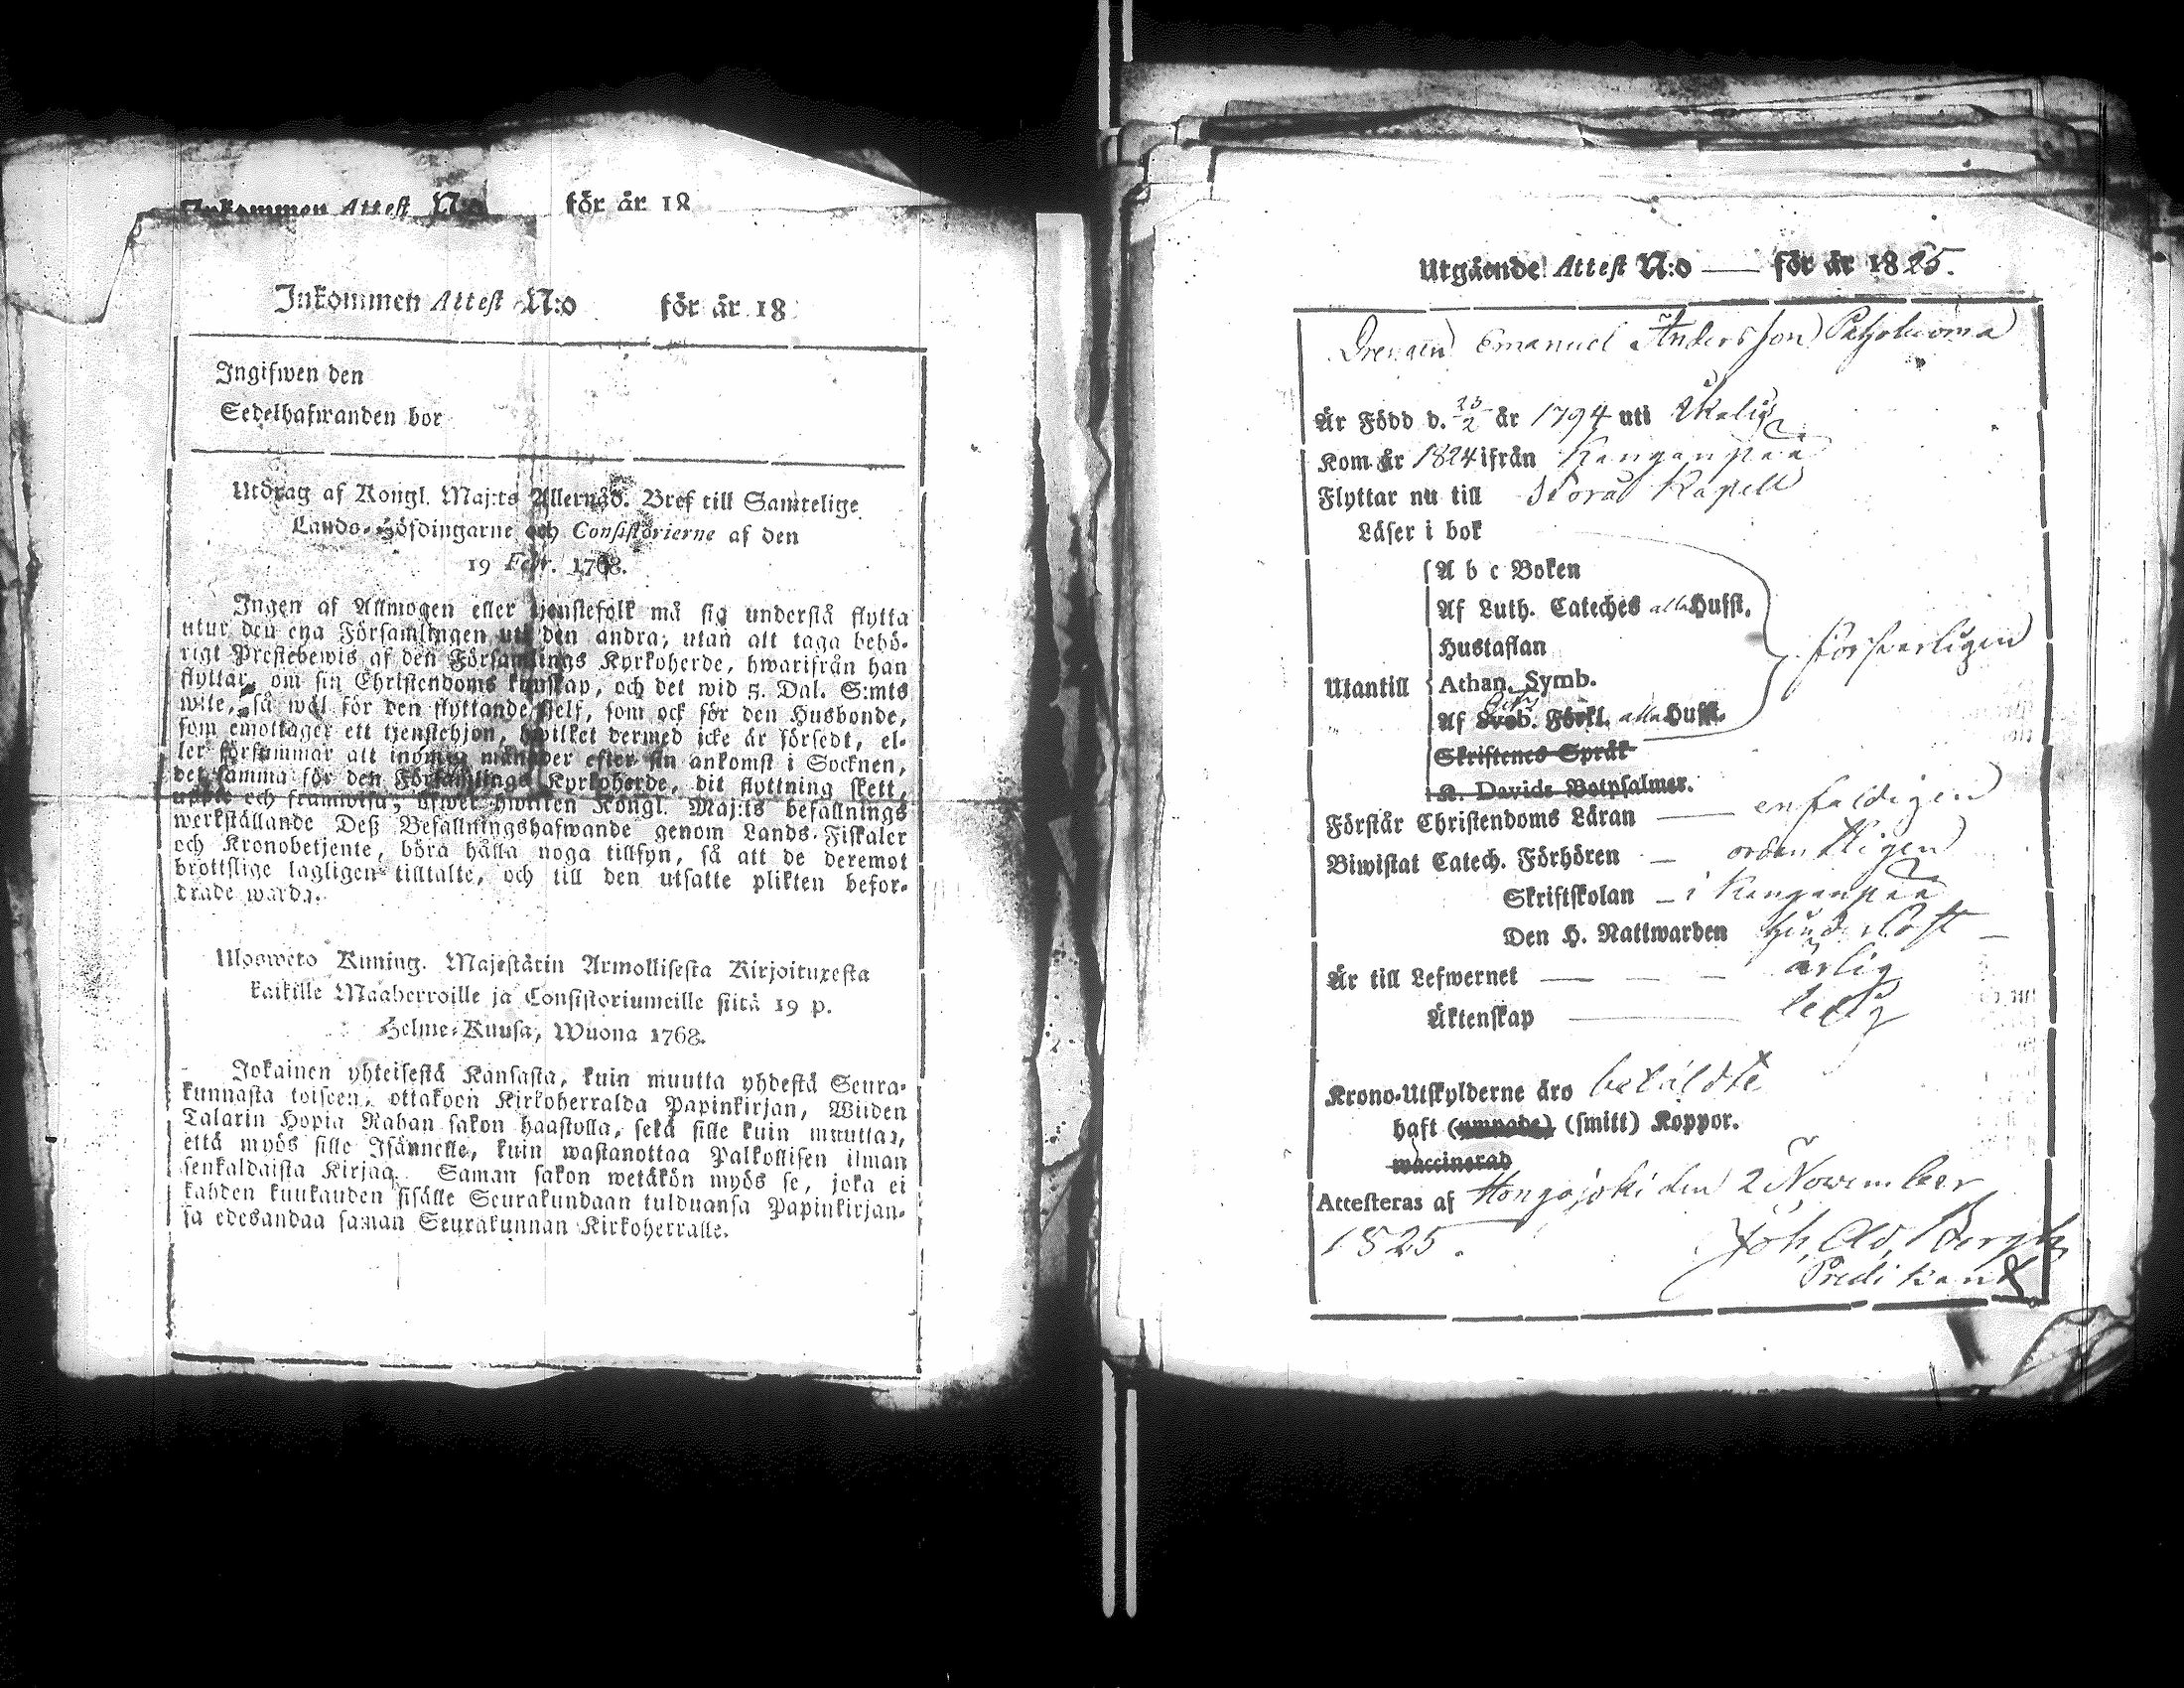 Inkommen Attest N:o för år 18
Inkommen Attest N:o för år 18
Ingifwen den
Sedelhafwanden bor
Utdrag af Kongl. Maj:ts Allernåd. Bref till Samtelige
Lands-Höfdingarne och Consistorierne af den
19 Febr. 1768.
Ingen af Allmogen eller tjenstefolk må sig understå flytta
utur den ena Församlingen uti den andra, utan att taga behö-
rigt Prestebewis af den Församlings Kyrkoherde, hwarifrån han
flyttar, om sin Christendoms kunskap, och det wid 5. Dal. S:mts
wite, så wäl för den flyttande sjelf, som ock för den Husbonde,
som emottager ett tjenstehjon, hwilket dermed icke är försedt, el-
ler försummar att inom månader efter sin ankomst i Socknen,
det samma för den Församlings Kyrkoherde, dit flyttning skett,
uppte och framwisa; öfwer hwilken Kongl. Maj:ts befallnings
werkställande Deß Befallningshafwande genom Lands-Fiskaler
och Kronobetjente, böra hålla noga tillsyn, så att de deremot
brottslige lagligen tilltalte, och till den utsatte plikten befor-
drade warda.
Ulosweto Kuning. Majestätin Armollisesta Kirjoituxesta
kaikille Maaherroille ja Consistoriumeille siitä 19 p.
Helme-Kuusa, Wuona 1768.
Jokainen yhteisestä Kansasta, kuin muutta yhdestä Seura-
kunnasta toiseen, ottakoon Kirkoherralda Papinkirjan, Wiiden
Talarin Hopia Rahan sakon haastolla, sekä sille kuin muuttaa,
että myös sille Isännelle, kuin wastanottaa Palkollisen ilman
senkaldaista Kirjaa. Saman sakon wetäkön myös se, joka ei
kahden kuukauden sisälle Seurakundaan tulduansa Papinkirjan-
sa edesandaa saman Seurakunnan Kirkoherralle.
Utgående Attest N:o — för år 1825.
Drengen Emanuel Andersson
Är Född d. 23/2 år 1794 uti Ikalis
Kom år 1824 ifrån Kanganpää
Flyttar nu till Stora Kapell
Läser i bok
A b c Boken
Af Luth. Cateches alla Husst.
Hustaflan
försvarligen
Utantill Athan. Symb.
Af Sveb. Förkl. alla Husst.
Skriftenes Språk
K. Davids Botpsalmer.
Förstår Christendoms Läran — enfaldigen
Biwistat Catech. Förhören — ordentligen
Skriftskolan — i Kanganpää
Den H. Nattwarden
Är till Lefwernet — — — ärlig
Äktenskap — ledig
Krono-Utskylderne äro betaldte
haft (ympade) (smitt) Koppor.
waccinerad
Attesteras af Hongojoki den 2 November
1825. Joh. Ad. Bergh
Predikant